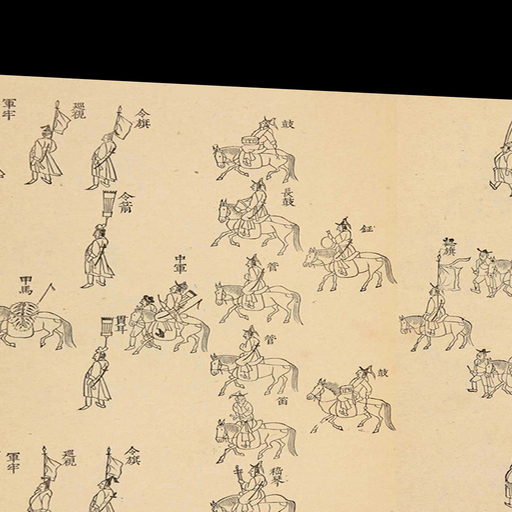 鼓
長鼓
管
管
笛
嵇琴
鉦
鼓
令旗
令箭
中軍
貫耳
令旗
巡視
巡視
軍牢
甲馬
軍牢